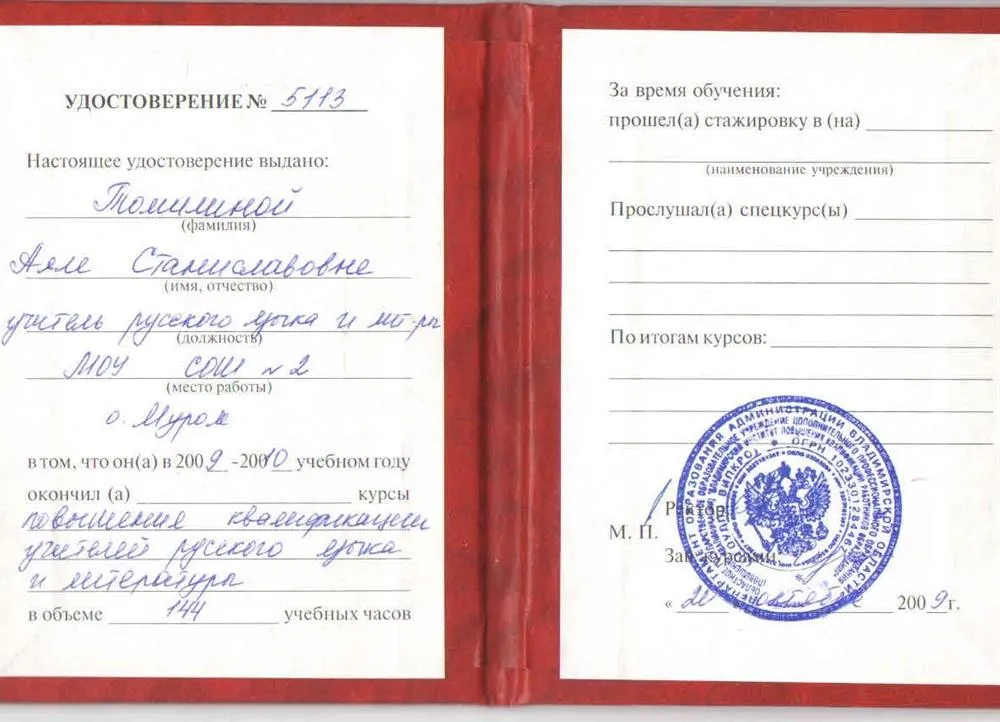 УДОСТОВЕРЕНИЕ № 5113
Настоящее удостоверение выдано:
Томилиной
(фамилия)
Алле Станиславовне
(имя, отчество)
учитель русского языка и лит-ры
(должность)
МОУ СОШ №2
(место работы)
о. Муром
в том, что он(а) в 2009 -2010 учебном году
окончил (а) курсы
повышения квалификации
учителей русского языка
и литературы
в объеме 144 учебных часов
За время обучения:
прошел(а) стажировку в (на)
(наименование учреждения)
Прослушал(а) спецкурс(ы)
По итогам курсов:
Ректор
М. П.
Зав. курсами
« октября 2009г.
ДЕПАРТАМЕНТ ОБРАЗОВАНИЯ АДМИНИСТРАЦИИ ВЛАДИМИРСКОЙ ОБЛАСТИ